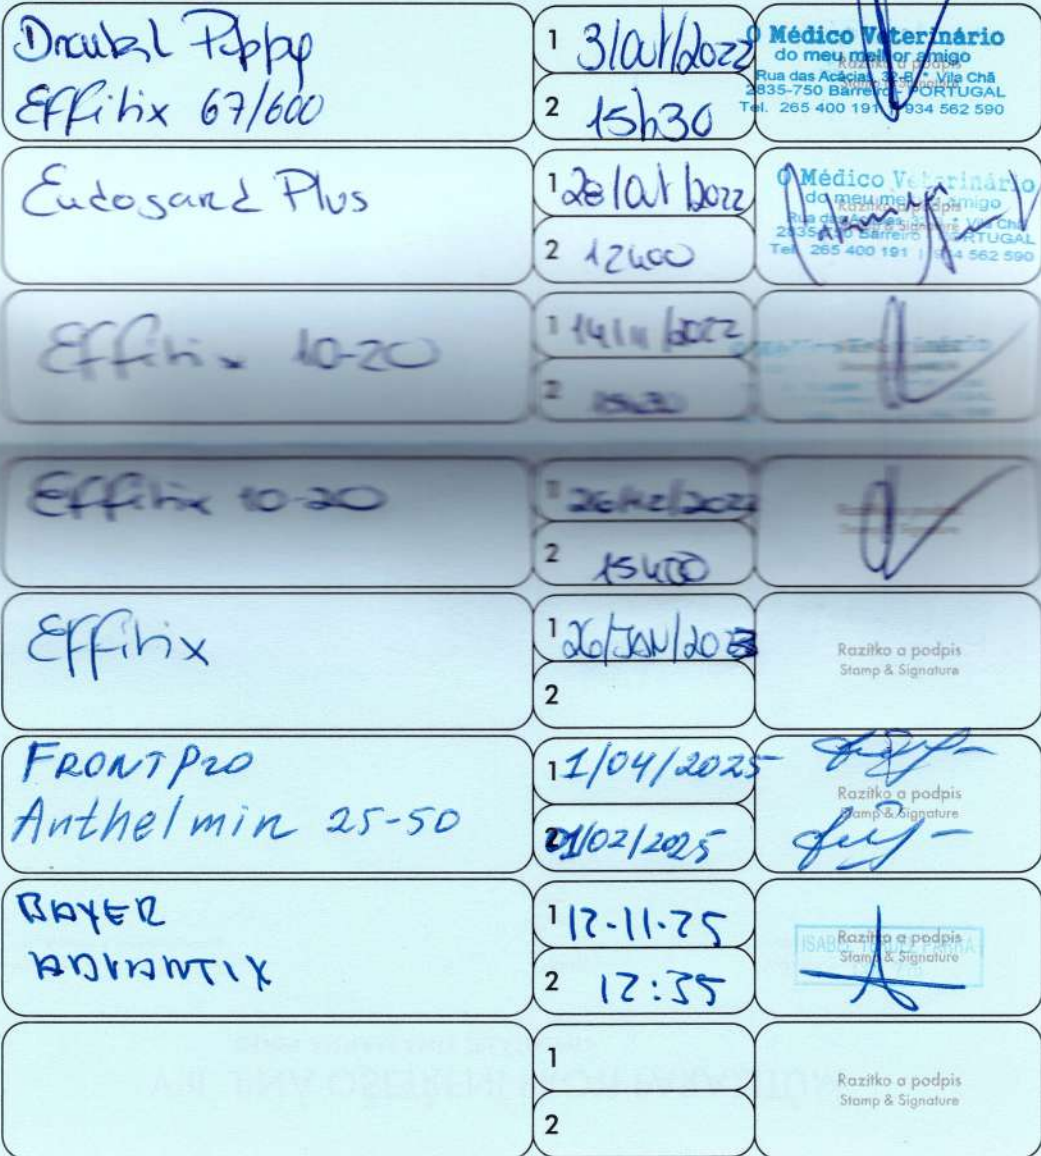 Drontal Puppy
Effitix 67/600
1 3/Out/2022
2 15h30
O Médico Veterinário
do meu melhor amigo
Razítko a podpis
Rua das Acácias, 32-B * Vila Chã
2835-750 Barreiro - PORTUGAL
Tel. 265 400 191 | 934 562 590
Endogard Plus
1 28/Out/2022
2 12h00
O Médico Veterinário
do meu melhor amigo
Razítko a podpis
Rua das Acácias, 32-B * Vila Chã
Stamp & Signature
2835-750 Barreiro - PORTUGAL
Tel. 265 400 191 | 934 562 590
Effitix 10-20
1 14/11/2022
2 15h30
Effitix 10-20
1 26/Dez/2022
2 15h00
Razítko a podpis
Stamp & Signature
Effitix
1 26/JAN/2023
2
Razítko a podpis
Stamp & Signature
FRONTPRO
Anthelmin 25-50
1 1/04/2025
2 01/02/2025
Razítko a podpis
Stamp & Signature
BAYER
ADVANTIX
1 12-11-25
2 12:35
Razítko a podpis
Stamp & Signature
ISABEL
1
2
Razítko a podpis
Stamp & Signature